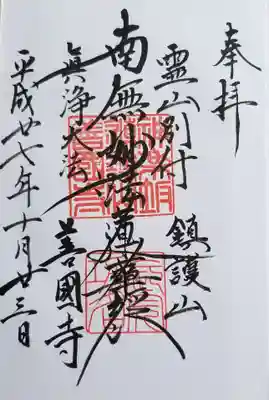 奉拝
霊山別付
鎮護山
南無妙法蓮華経
真浄大法
善國寺
平成廿七年十月廿三日